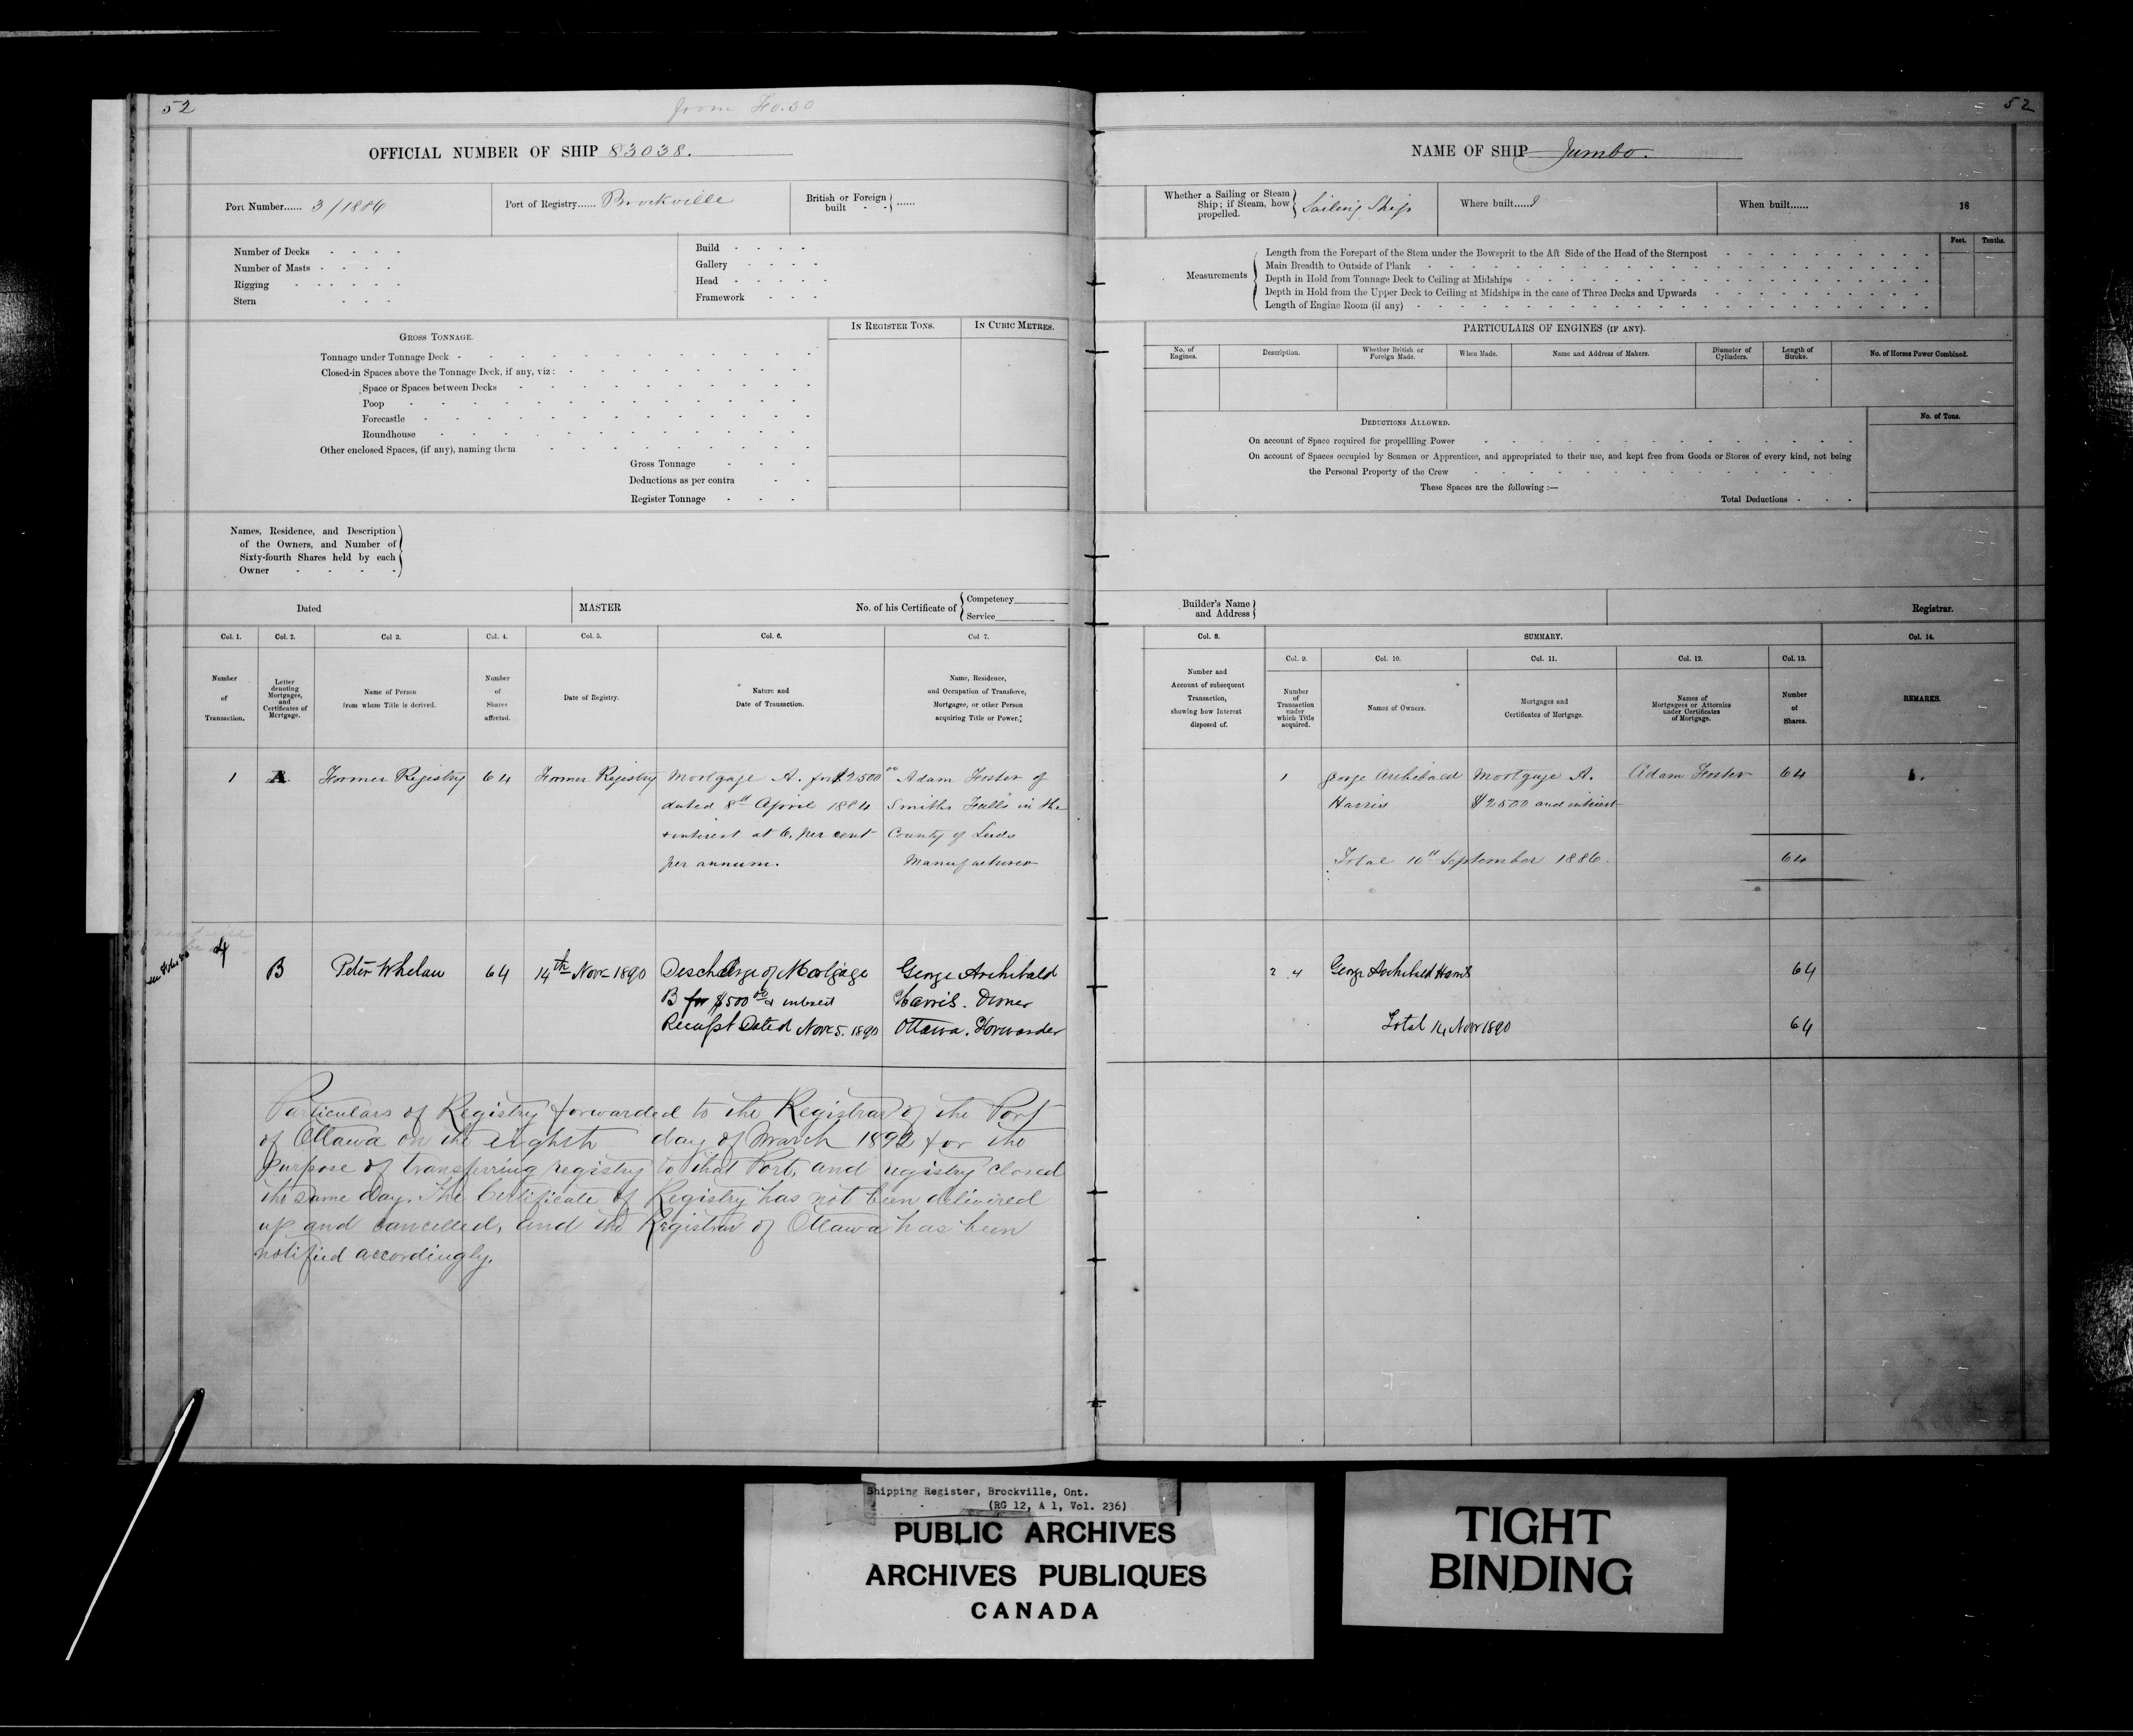 52
from Fo. 50
OFFICIAL NUMBER OF SHIP 83038.
Port Number...... 3/1886
Port of Registry...... Brockville
British or Foreign built - - } ......
Number of Decks - - - -
Number of Masts - - - -
Rigging - - - - -
Stern - - -
Build - - - -
Gallery - - - -
Head - - - - -
Framework - - -
GROSS TONNAGE.
IN REGISTER TONS.
IN CUBIC METRES.
Tonnage under Tonnage Deck
Closed-in Spaces above the Tonnage Deck, if any, viz:
Space or Spaces between Decks
Poop
Forecastle
Roundhouse
Other enclosed Spaces, (if any), naming them
Gross Tonnage
Deductions as per contra
Register Tonnage
Names, Residence, and Description
of the Owners, and Number of
Sixty-fourth Shares held by each
Owner - - - -
Dated
MASTER
No. of his Certificate of { Competency
Service
Col. 1. Col. 2. Col 3. Col. 4. Col. 5. Col. 6. Col 7.
Number of Transaction.
Letter denoting Mortgages, and Certificates of Mortgage.
Name of Person from whom Title is derived.
Number of Shares affected.
Date of Registry.
Nature and Date of Transaction.
Name, Residence, and Occupation of Transferee, Mortgagee, or other Person acquiring Title or Power.
1 A. Former Registry 64 Former Registry Mortgage A. for $2500 00 Adam Foster of
dated 8th April 1884 Smiths Falls in the
+ interest at 6. per cent County of Leeds
per annum. Manufacturer
4 B Peter Whelan 64 14th Nov 1890 Discharge of Mortgage George Archibald
B for $500 00 & interest Harris. Owner
Receipt Dated Nov 5. 1890 Ottawa. Forwarder
Particulars of Registry forwarded to the Registrar of the Port
of Ottawa on the eighth day of March 1892 for the
purpose of transferring registry to that Port, and registry closed
the same day. The Certificate of Registry has not been delivered
up and cancelled, and the Registrar of Ottawa has been
notified accordingly.
52
NAME OF SHIP Jumbo.
Whether a Sailing or Steam Ship; if Steam, how propelled. } Sailing Ship
Where built......
When built...... 18
Measurements
Feet. Tenths.
Length from the Forepart of the Stem under the Bowsprit to the Aft Side of the Head of the Sternpost
Main Breadth to Outside of Plank
Depth in Hold from Tonnage Deck to Ceiling at Midships
Depth in Hold from the Upper Deck to Ceiling at Midships in the case of Three Decks and Upwards
Length of Engine Room (if any)
PARTICULARS OF ENGINES (IF ANY).
No. of Engines.
Description.
Whether British or Foreign Made.
When Made.
Name and Address of Makers.
Diameter of Cylinders.
Length of Stroke.
No. of Horses Power Combined.
DEDUCTIONS ALLOWED.
No. of Tons.
On account of Space required for propellling Power
On account of Spaces occupied by Seamen or Apprentices, and appropriated to their use, and kept free from Goods or Stores of every kind, not being
the Personal Property of the Crew
These Spaces are the following :—
Total Deductions
Builder's Name and Address }
Registrar.
Col. 8. SUMMARY. Col. 14.
Col. 9. Col. 10. Col. 11. Col. 12. Col. 13.
Number and Account of subsequent Transaction, showing how Interest disposed of.
Number of Transaction under which Title acquired.
Names of Owners.
Mortgages and Certificates of Mortgage.
Names of Mortgagees or Attornies under Certificates of Mortgage.
Number of Shares.
REMARKS.
1 George Archibald Mortgage A. Adam Foster 64
Harris $2500 and interest
Total 10th September 1886. 64
2 4 George Archibald Harris 64
Total 14 Nov 1890 64
Shipping Register, Brockville, Ont.
(RG 12, A 1, Vol. 236)
PUBLIC ARCHIVES
ARCHIVES PUBLIQUES
CANADA
TIGHT
BINDING